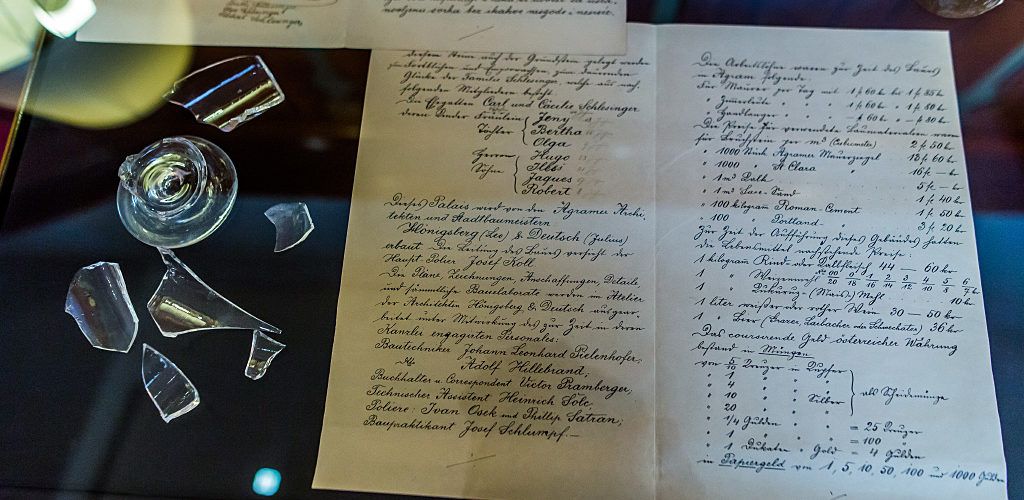 neodoljena sorka bez ikakve nezgode i nesreće.
diesem Heim auf der Grundstein gelegt werden
zum dauernden
Glücke der Familie Schlesinger, welche aus nach,
folgenden Mitgliedern besteht.
Die Ehgatten Carl und Cäcilie Schlesinger
deren Kinder Fräulein Jeny
Töchter Bertha
Olga
Herren Hugo
Söhne
Jaques
Robert
Dieses Palais wird von den Agramer Archi-
tekten und Stadtbaumeistern
Hönigsberg (Leo) & Deutsch (Julius)
erbaut. Die Leitung des Baues versieht der
Haupt Polier Josef Koll.
Die Pläne, Zeichnungen, Anschaffungen, Details
und sämmtliche Bauelaborate werden im Atelier
der Architekten Hönigsberg & Deutsch ausgear-
beitet unter Mitwirkung des zur Zeit in deren
Kanzlei engagirten Personales:
Bautechniker Johann Leonhard Pielenhofer;
Adolf Hillebrand;
Buchhalter u. Correspondent Victor Pramberger;
Technischer Assistent Heinrich Solc
Poliere: Ivan Osek und Phillip Satran;
Baupraktikant Josef Schlumpf.—
Die Arbeitslöhne waren zur Zeit des Baues
in Agram folgende:
Für Maurer per Tag mit 1 f. 60 kr bis 1 f. 85 kr
" Zimerleute " " 1 f. 60 kr " 1 f. 80 kr
" Handlanger " " – f. 60 kr " – f. 80 kr
Die Preise für verwendete Baumaterialien waren
für Bruchstein per m³ 2 f. 50 kr
" 1000 Stück Agramer Mauerziegel 18 f. 60 kr
" 1000 " St Clara " 16 f. – kr
" 1 m³ Kalk 5 f. – kr
" 1 m³ Save-Sand 1 f. 40 kr
" 100 kilogram Roman-Cement 1 f. 50 kr
" 100 " Portland " 3 f. 20 kr
Zur Zeit der Aufführung dieses Gebäudes hatten
die Lebensmittel nachstehende Preise:
1 kilogram Rind oder Kalbfleisch 44 – 60 kr
1 " Weizenmehl
1 " Kukuruz-(Mais) Mehl 10 kr
1 liter weißer oder rother Wein 30 – 60 kr
1 " Bier 36 kr
Das coursirende Geld österreichischer Währung
bestand in Münzen
von 5/10 Kreuzer in Kupfer
" 1 " " "
" 4 " " "
" 10 " " Silber als Scheidemünze
" 20 " " "
" 1/4 Gulden " " = 25 Kreuzer
" 1 " " " = 100 "
" 1 Dukaten " Gold = 4 Gulden
in Papiergeld von 1, 5, 10, 50, 100 und 1000 Gulden